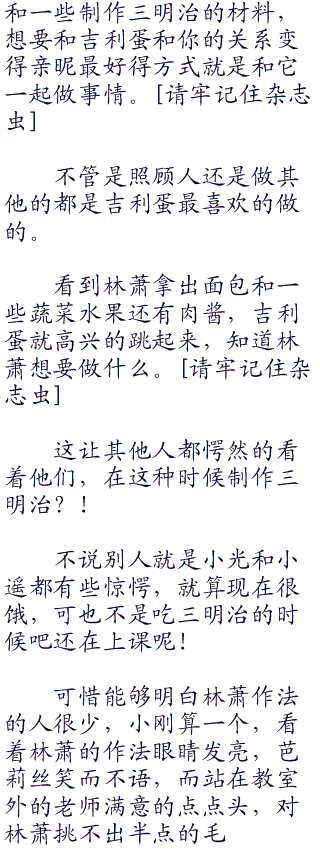 和一些制作三明治的材料，
想要和吉利蛋和你的关系变
得亲昵最好得方式就是和它
一起做事情。[请牢记住杂志
虫]
不管是照顾人还是做其
他的都是吉利蛋最喜欢的做
的。
看到林萧拿出面包和一
些蔬菜水果还有肉酱，吉利
蛋就高兴的跳起来，知道林
萧想要做什么。[请牢记住杂
志虫]
这让其他人都愕然的看
着他们，在这种时候制作三
明治？！
不说别人就是小光和小
遥都有些惊愕，就算现在很
饿，可也不是吃三明治的时
候吧还在上课呢！
可惜能够明白林萧作法
的人很少，小刚算一个，看
着林萧的作法眼睛发亮，芭
莉丝笑而不语，而站在教室
外的老师满意的点点头，对
林萧挑不出半点的毛